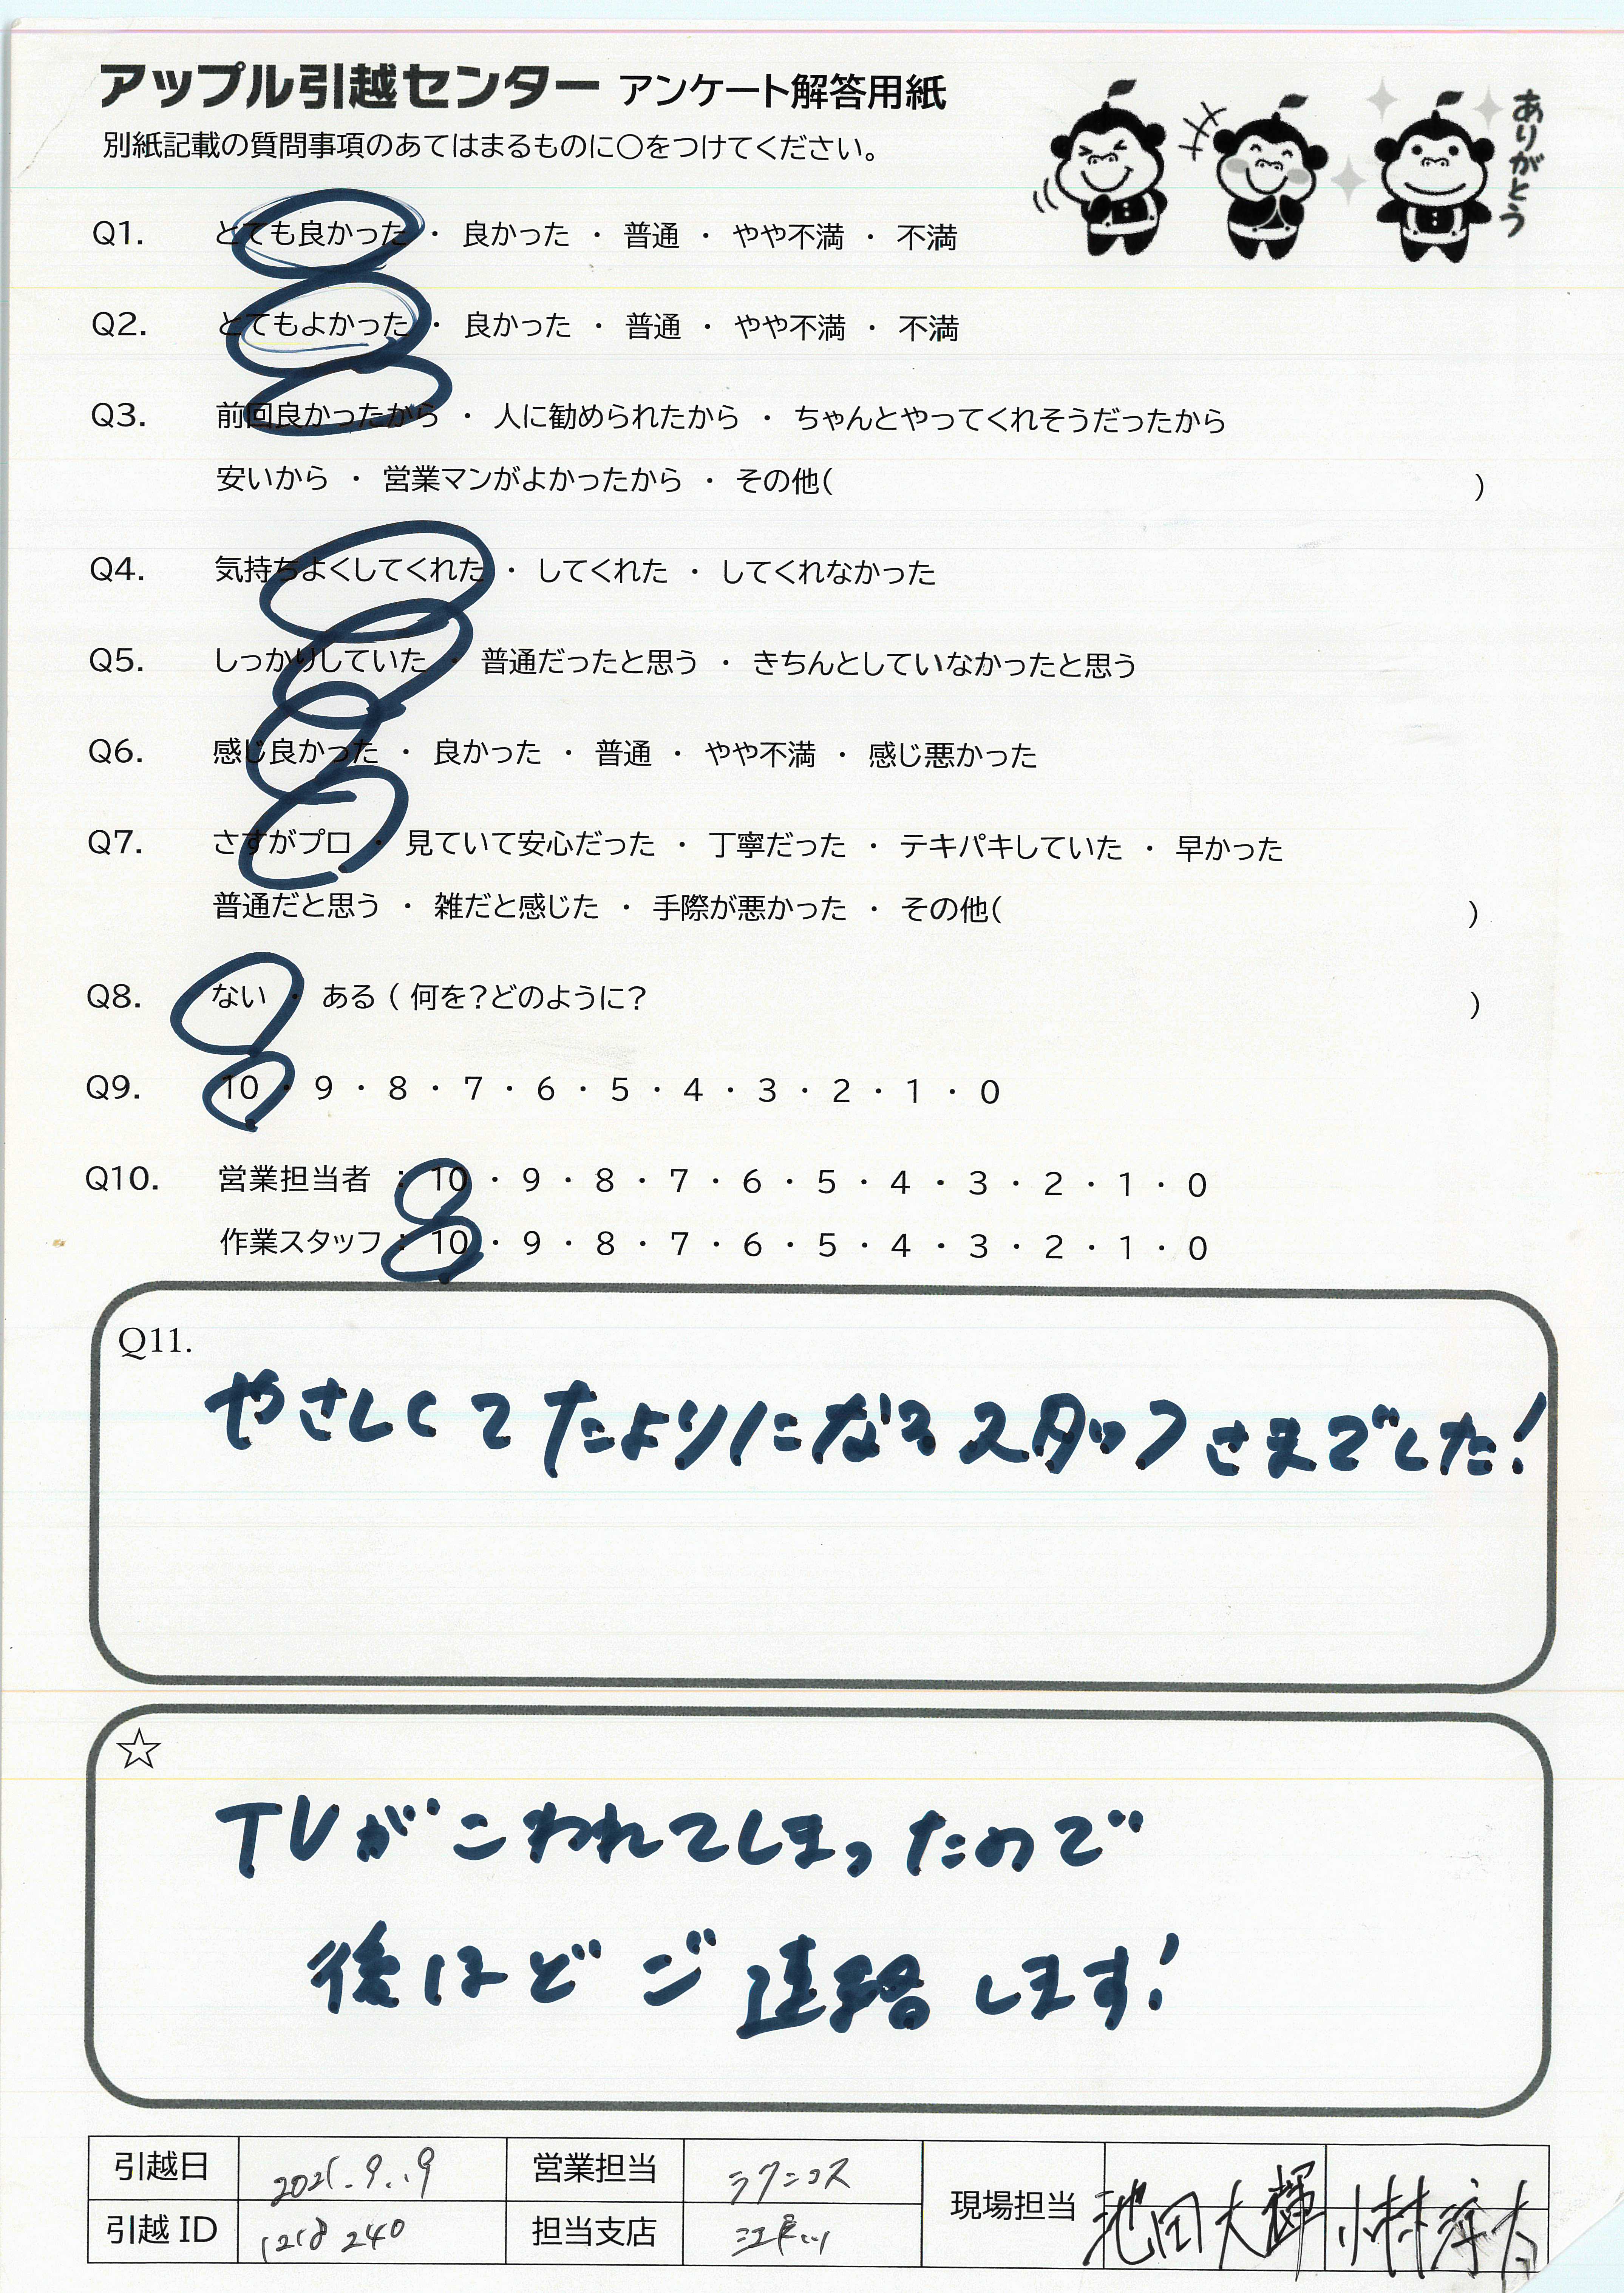 アップル引越センター アンケート解答用紙
別紙記載の質問事項のあてはまるものに○をつけてください。
ありがとう
Q1. とても良かった ・ 良かった ・ 普通 ・ やや不満 ・ 不満
Q2. とてもよかった ・ 良かった ・ 普通 ・ やや不満 ・ 不満
Q3. 前回良かったから ・ 人に勧められたから ・ ちゃんとやってくれそうだったから
安いから ・ 営業マンがよかったから ・ その他( )
Q4. 気持ちよくしてくれた ・ してくれた ・ してくれなかった
Q5. しっかりしていた ・ 普通だったと思う ・ きちんとしていなかったと思う
Q6. 感じ良かった ・ 良かった ・ 普通 ・ やや不満 ・ 感じ悪かった
Q7. さすがプロ ・ 見ていて安心だった ・ 丁寧だった ・ テキパキしていた ・ 早かった
普通だと思う ・ 雑だと感じた ・ 手際が悪かった ・ その他( )
Q8. ない ・ ある ( 何を?どのように? )
Q9. 10 ・ 9 ・ 8 ・ 7 ・ 6 ・ 5 ・ 4 ・ 3 ・ 2 ・ 1 ・ 0
Q10. 営業担当者 : 10 ・ 9 ・ 8 ・ 7 ・ 6 ・ 5 ・ 4 ・ 3 ・ 2 ・ 1 ・ 0
作業スタッフ : 10 ・ 9 ・ 8 ・ 7 ・ 6 ・ 5 ・ 4 ・ 3 ・ 2 ・ 1 ・ 0
Q11.
やさしくてたよりになるスタッフさまでした!
☆
TVがこわれてしまったので
後ほどご連絡します!
引越日 営業担当 ラクニコス 現場担当 池田大輝
引越ID 1218240 担当支店 江戸川